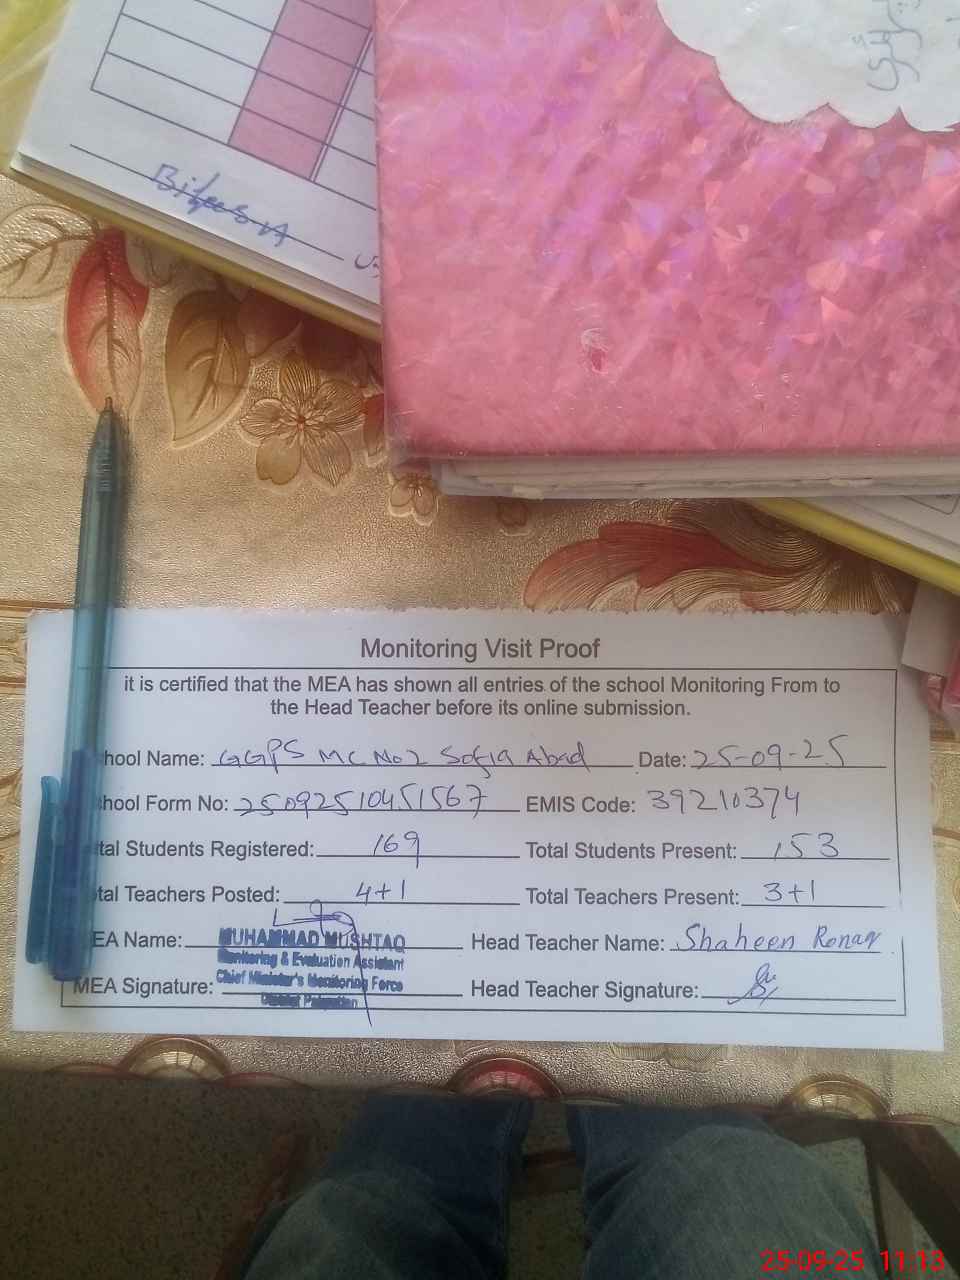 Monitoring Visit Proof
it is certified that the MEA has shown all entries of the school Monitoring From to
the Head Teacher before its online submission.
hool Name: GGPS MC No 2 Sofia Abad Date: 25-09-25
hool Form No: 25092510451567 EMIS Code: 39210374
tal Students Registered: 169 Total Students Present: 153
tal Teachers Posted: 4+1 Total Teachers Present: 3+1
EA Name: MUHAMMAD MUSHTAQ Head Teacher Name: Shaheen Ronaq
Monitoring & Evaluation Assistant
Chief Minister's Monitoring Force
MEA Signature: Head Teacher Signature:
District Pakpattan
25-09-25 11:13